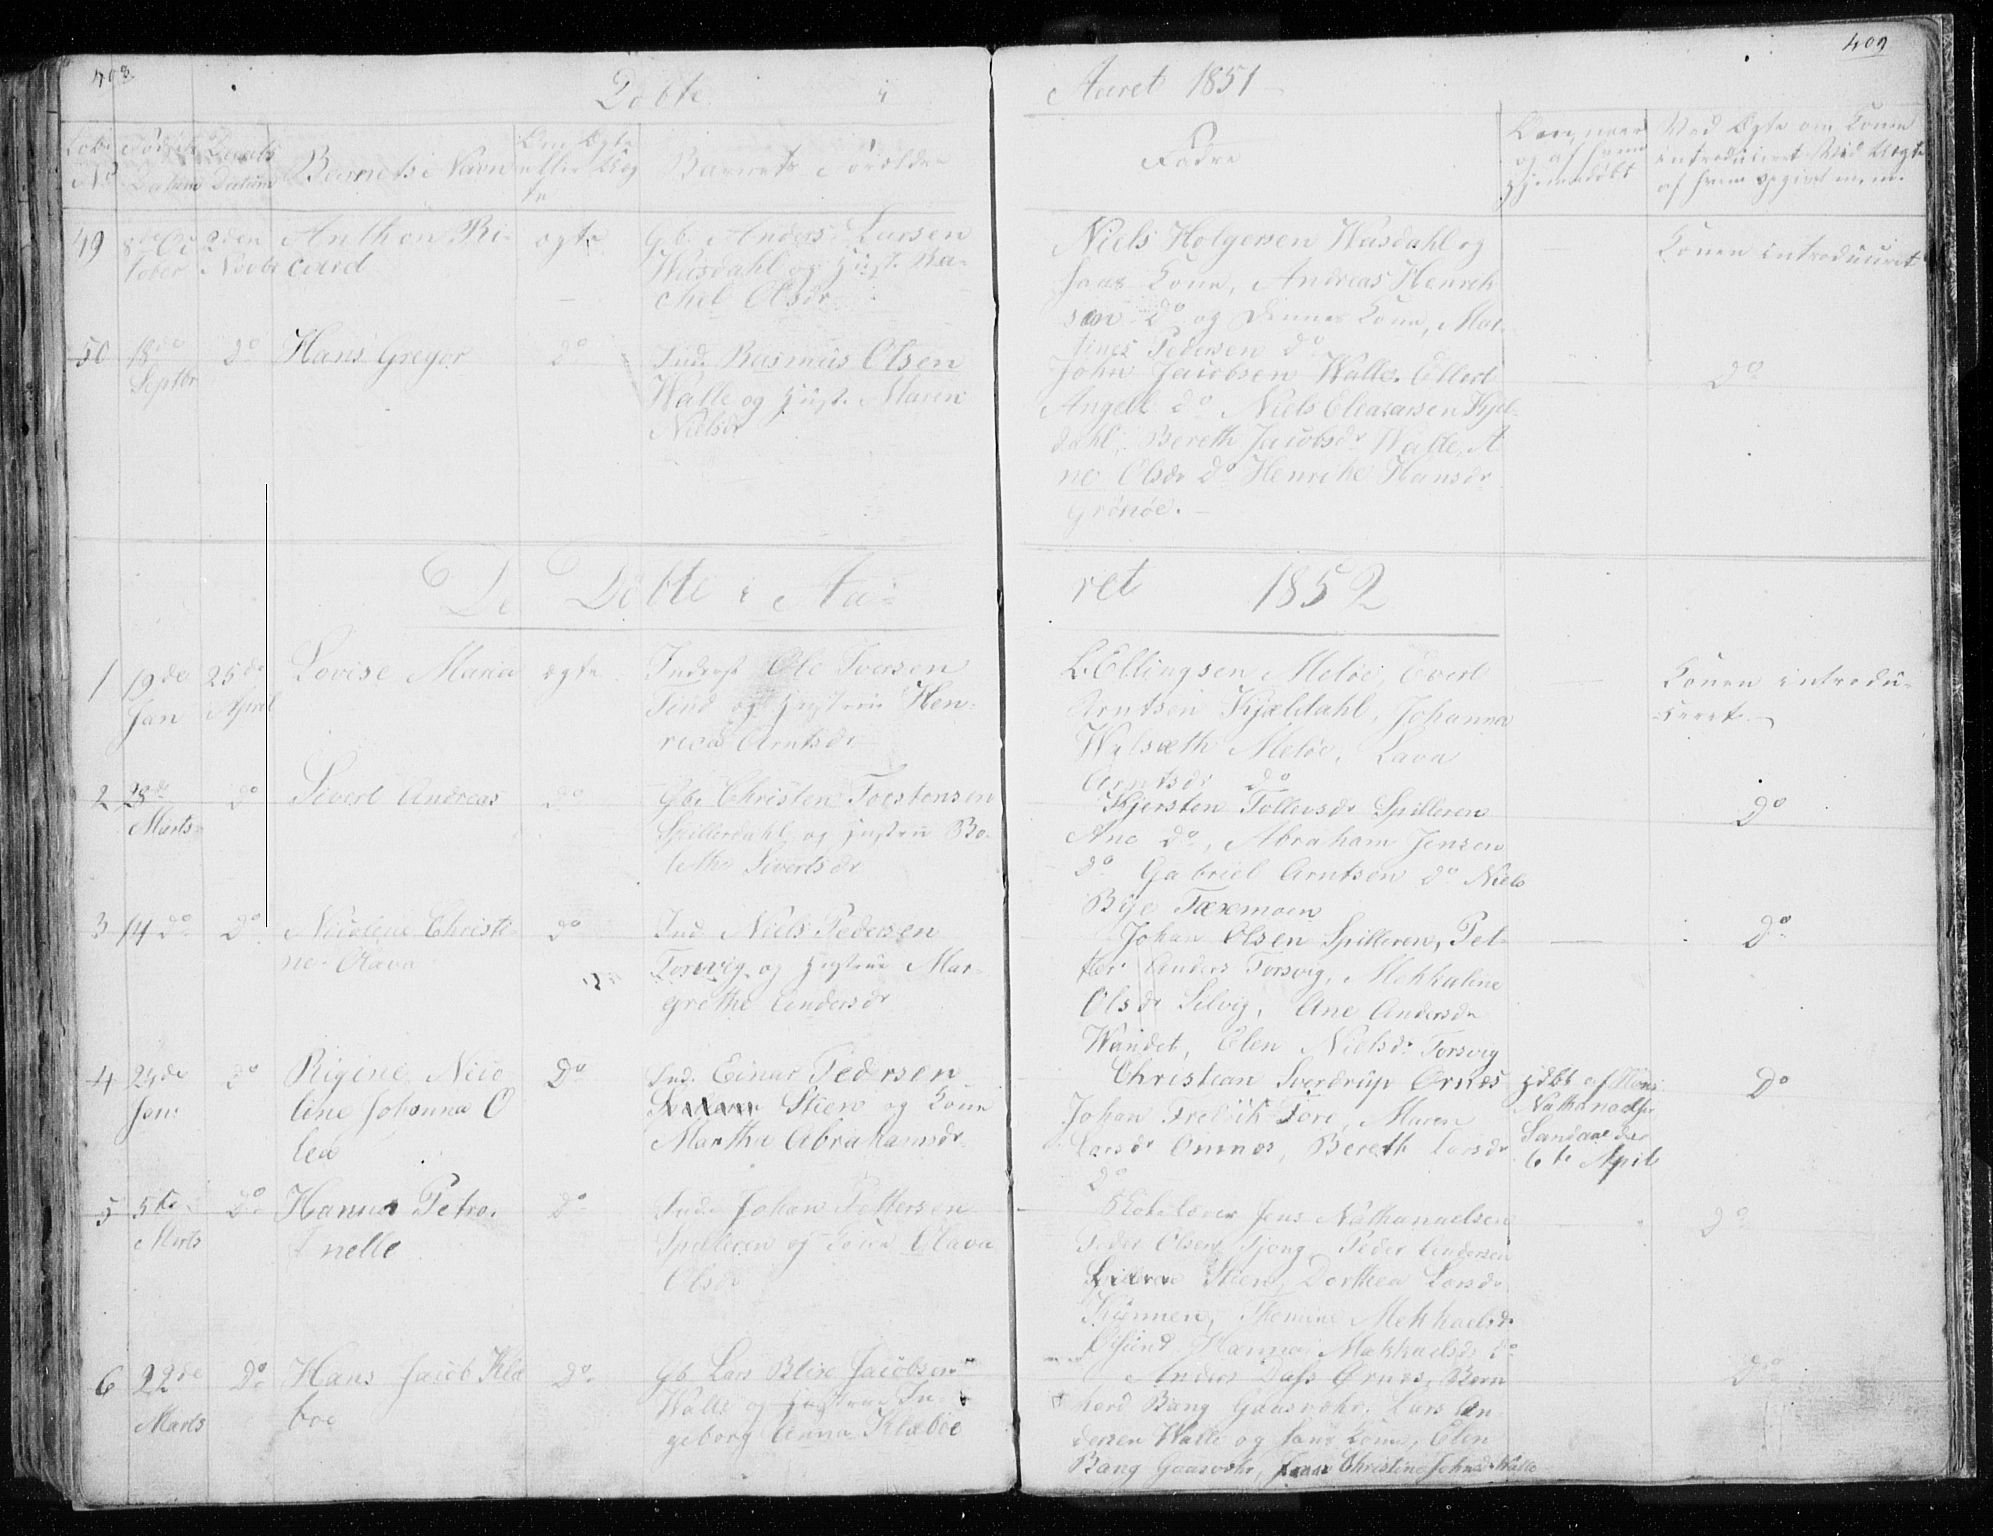 408
409
Döbte i
Aaret 1851
Löbe No
Födsels Datum
Daabs Datum
Barnets Navn
Om Ægte eller Uægte
Barnets Forældre
Fadre
Om, naar
og af hvem
hjemmedöbt
Ved Ægte om Konen
introduceret. Ved Uægte
af hvem opgivet m. m.
49
8de Oc-
tober
2den
Novbr
Anthon Ri-
card
ægte
Gb. Anders Larsen
Wasdahl og Hust. Ra-
chel Olsdr
Niels Holgersen Wasdahl og
hans Kone, Andreas Henrik
sen do og dennes Kone, Mar-
tines Pedersen do
Konen introduceret
50
18de
Septbr
do
Hans Gregor
do
Ind. Rasmus Olsen
Walle og Hust. Maren
Nielsdr
John Jacobsen Walle. Ellert
Angell do Niels Eleasarsen Kjel-
dahl, Bereth Jacobsdr Walle, A-
ne Olsdr do Henrike Hansdr
Grönöe.
do
De Döbte i Aa-
ret 1852
1
19de
Jan
25de
April
Lovise Maria
ægte
Inderst Ole Iversen
Tind og Hustrue Hen-
rica Arntsdr
L. Ellingsen Melöe, Evert
Arntsen Kjældahl, Johanna
Walsæth Melöe, Lava
Arntsdr do
Konen introdu-
ceret
2
28de
Marts
do
Sivert Andreas
do
Gbr Christen Torstensen
Spillerdahl og Hustru Be-
rethe Sivertsdr
Kjersten Tollevsdr Spilleren
Ane do, Abraham Jensen
do Gabriel Arntsen do Niels
Bye Toremoen
do
3
14 do
do
Nicoline Christi-
ne Olava
do
Ind Niels Pedersen
Torsvig og Hustrue Mar-
grethe Andersdr
Johan Olsen Spilleren, Pet-
ter Anders Torsvig, Mekkaline
Olsdr Selvig, Ane Andersdr
Wandet, Elen Nielsdr Torsvig
do
4
24de
Jan:
do
Rigine Nico
line Johanna O
lea
Do
Ind. Einar Pedersen
Stien og Kone
Martha Abrahamsdr
Christian Sverdrup Ornæs
Johan Fredrik Fore, Maren
Larsdr Omnæs, Bereth Larsdr
do
hdbt af Jens
Nathanaelsen
Sandaae den
6te April
Do
5
5te
Marts
Do
Hanna Petro-
nelle
Do
Ind. Johan Pettersen
Spilleren og Kone Olava
Olsdr
Skolelærer Jens Nathanaelsen
Peder Olsen Tjong Peder Andersen
Stien, Dorthea Larsdr
Kunnen, Themine Mekkaelsdr
Øesund Hanna Mekkaelsdr do
do
6
22de
Marts
Do
Hans Jacob Klæ
boe
Do
Gb Lars Blix Jacobsen
Walle og Hustrue In-
geborg Anna Klæböe
Anders Dass Ørnæs, Bern
hard Bang Gaasvær, Lars An
dersen Walle og hans Kone, Elen
Bang Gaasvær, Christine Johnsdr Walle
Do